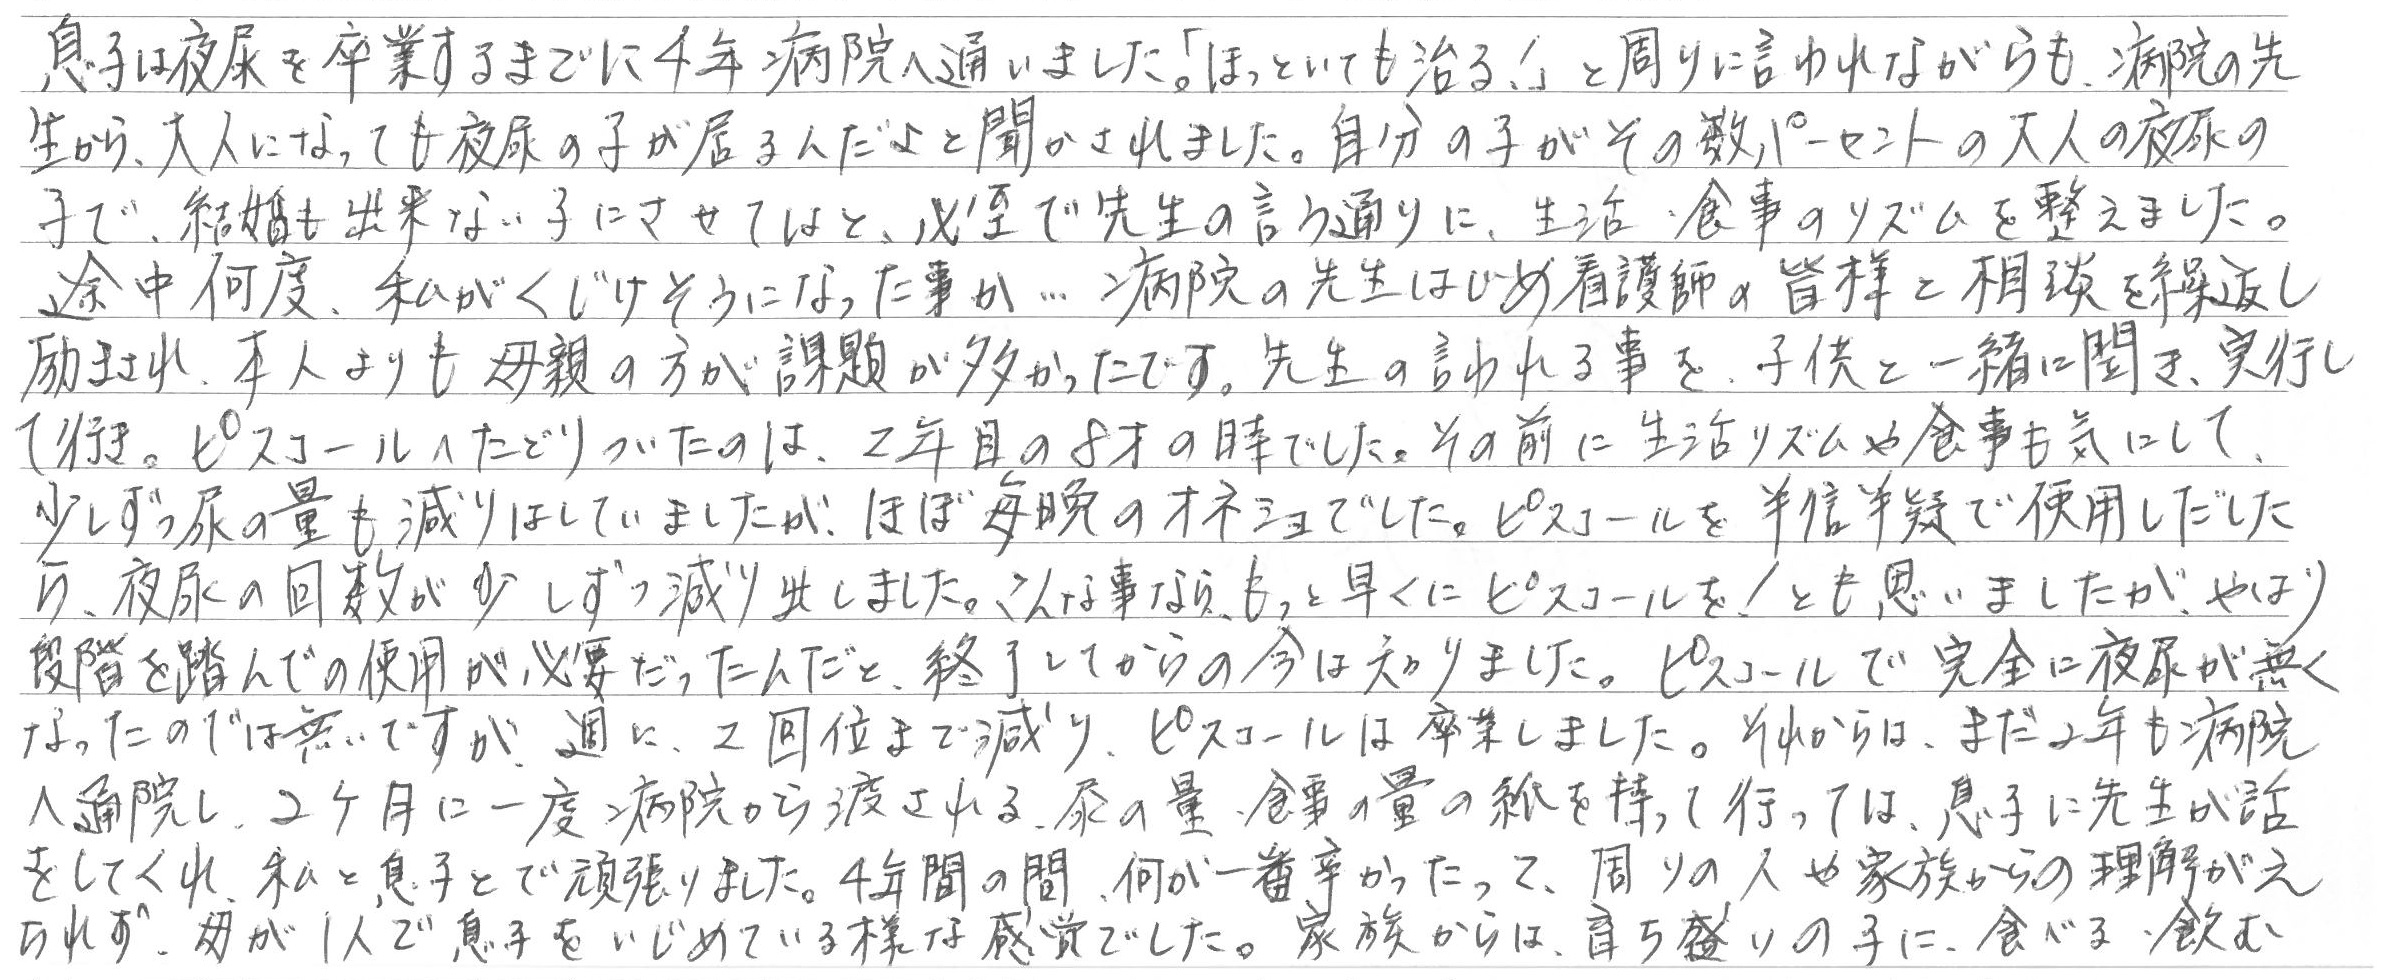 息子は夜尿を卒業するまでに4年病院へ通いました。「ほっといても治る！」と周りに言われながらも、病院の先
生から、大人になっても夜尿の子が居るんだよと聞かされました。自分の子がその数パーセントの大人の夜尿の
子で、結婚も出来ない子にさせてはと、必至で先生の言う通りに、生活・食事のリズムを整えました。
途中何度、私がくじけそうになった事か…病院の先生はじめ看護師の皆様と相談を繰返し
励まされ、本人よりも母親の方が課題が多かったです。先生の言われる事を、子供と一緒に聞き、実行し
て行き。ピスコールへたどりついたのは、2年目の8才の時でした。その前に生活リズムや食事も気にして、
少しずつ尿の量も減りはしていましたが、ほぼ毎晩のオネショでした。ピスコールを半信半疑で使用しだした
ら、夜尿の回数が少しずつ減り出しました。こんな事なら、もっと早くにピスコールを！とも思いましたが、やはり
段階を踏んでの使用が必要だったんだと、終了してからの今は知りました。ピスコールで完全に夜尿が無く
なったのでは無いですが、週に、2回位まで減り、ピスコールは卒業しました。それからは、まだ2年も病院
へ通院し、2ケ月に一度病院から渡される、尿の量・食事の量の紙を持って行っては、息子に先生が話
をしてくれ、私と息子とで頑張りました。4年間の間、何が一番辛かったって、周りの人や家族からの理解がえ
られず、母が1人で息子をいじめている様な感覚でした。家族からは、育ち盛りの子に、食べる・飲む